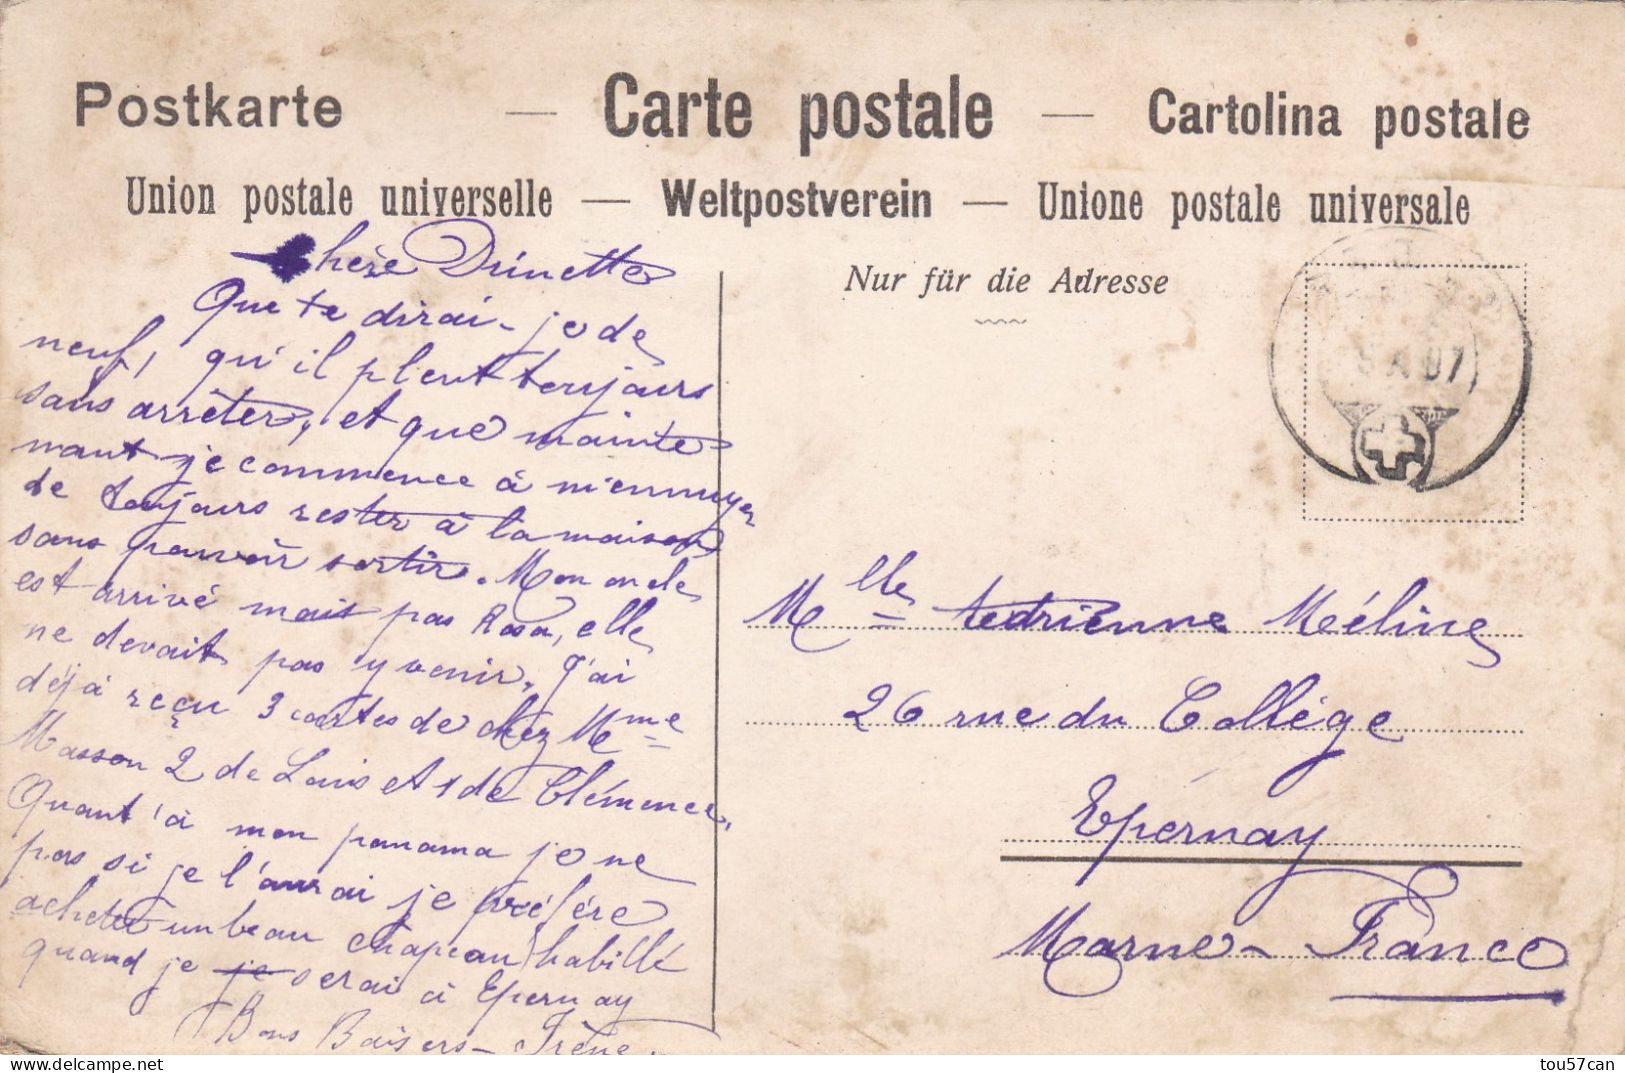 Postkarte — Carte postale — Cartolina postale
Union postale universelle — Weltpostverein — Unione postale universale
Nur für die Adresse
Chère Drinette
Que te dirai-je de
neuf, qu'il pleut toujours
sans arrêter, et que mainte
nant je commence à m'ennuyer
de toujours rester à la maison
sans pouvoir sortir. Mon oncle
est arrivé mais pas Rosa, elle
ne devait pas y venir. J'ai
déjà reçu 3 cartes de chez Mme
Masson 2 de Louis et 1 de Clémence.
Quant'à mon panama je ne
pas si je l'aurai je préfère
acheter un beau chapeau habillé
quand je je serai à Epernay
Bons Baisers - Irène
Mlle Adrienne Méline
26 rue du Collège
Epernay
Marne - France
07
tou57can